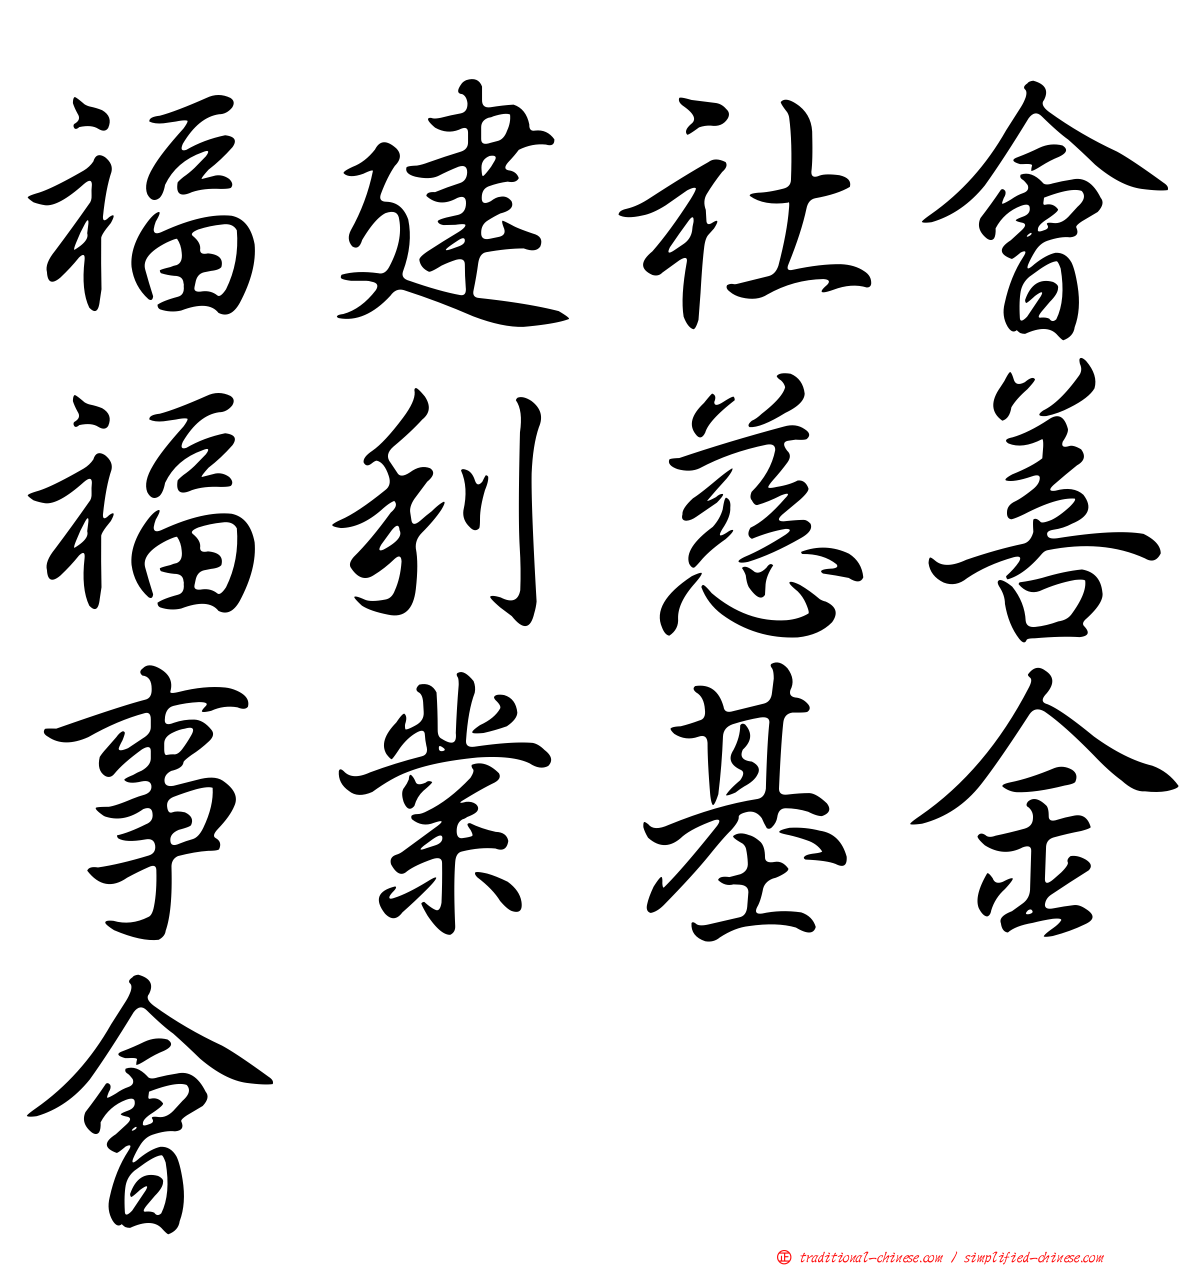 福建社會
福利慈善
事業基金
會
正 traditional-chinese.com / simplified-chinese.com